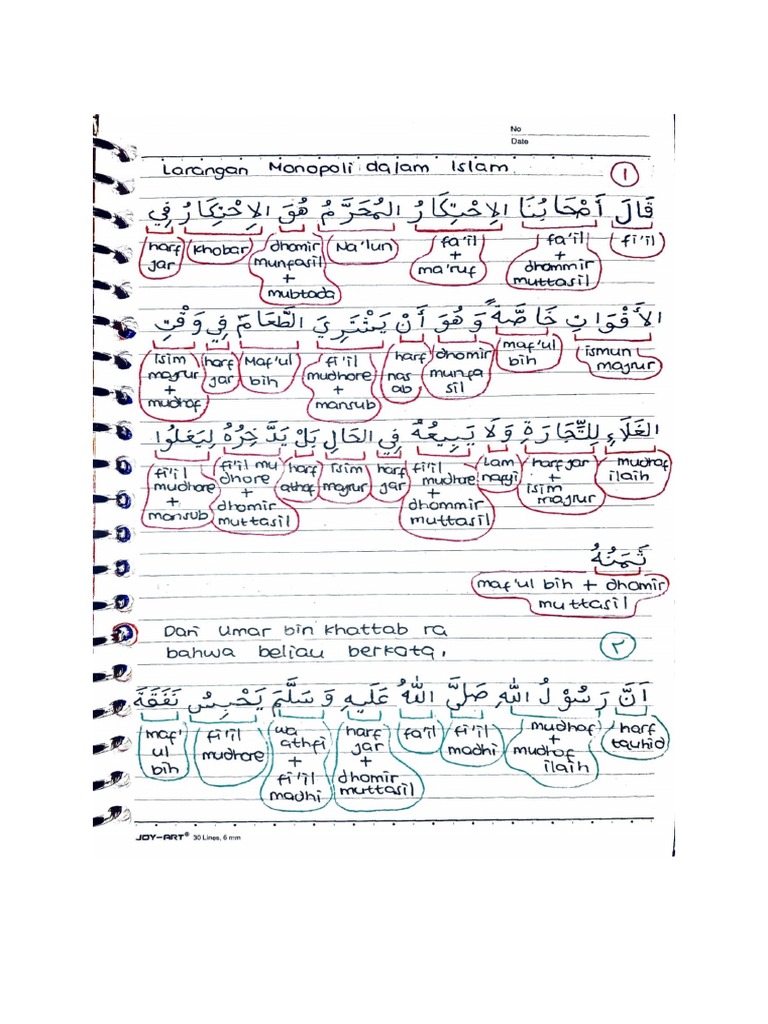 No
Date
Larangan Monopoli dalam Islam
١
قَالَ أَصْحَابُنَا الاِحْتِكَارُ المُحَرَّمُ هُوَ الاِحْتِكَارُ فِي
fi'il
fa'il + dhommir muttasil
fa'il + ma'ruf
Na'lun
dhomir munfasil + mubtada
khobar
harf jar
الأَقْوَاتِ خَاصَّةً وَهُوَ أَنْ يَشْتَرِيَ الطَّعَامَ فِي وَقْتِ
ismun majrur
maf'ul bih
dhomir munfa sil
harf nas ab
fi'il mudhore + mansub
Maf'ul bih
harf jar
isim majrur + mudhof
الغَلَاءِ لِلتِّجَارَةِ وَلَا يَبِيعُهُ فِي الحَالِ بَلْ يَدَّخِرُهُ لِيَغْلُوا
mudhaf ilaih
harf jar + isim majrur
Lam nafyi
fi'il mudhore + dhommir muttasil
harf jar
isim majrur
harf athof
fi'il mu dhore + dhomir muttasil
fi'il mudhore + mansub
ثَمَنُهُ
maf'ul bih + dhomir muttasil
Dari Umar bin khattab ra
٢
bahwa beliau berkata,
أَنَّ رَسُوْلُ اللهِ صَلَّى اللهُ عَلَيهِ وَسَلَّمَ يَحْبِسُ نَفَقَةَ
harf tauhid
mudhof + mudhaf ilaih
fi'il madhi
fa'il
harf jar + dhomir muttasil
wa athfi + fi'il madhi
fi'il mudhore
maf' ul bih
JOY-ART® 30 Lines, 6 mm